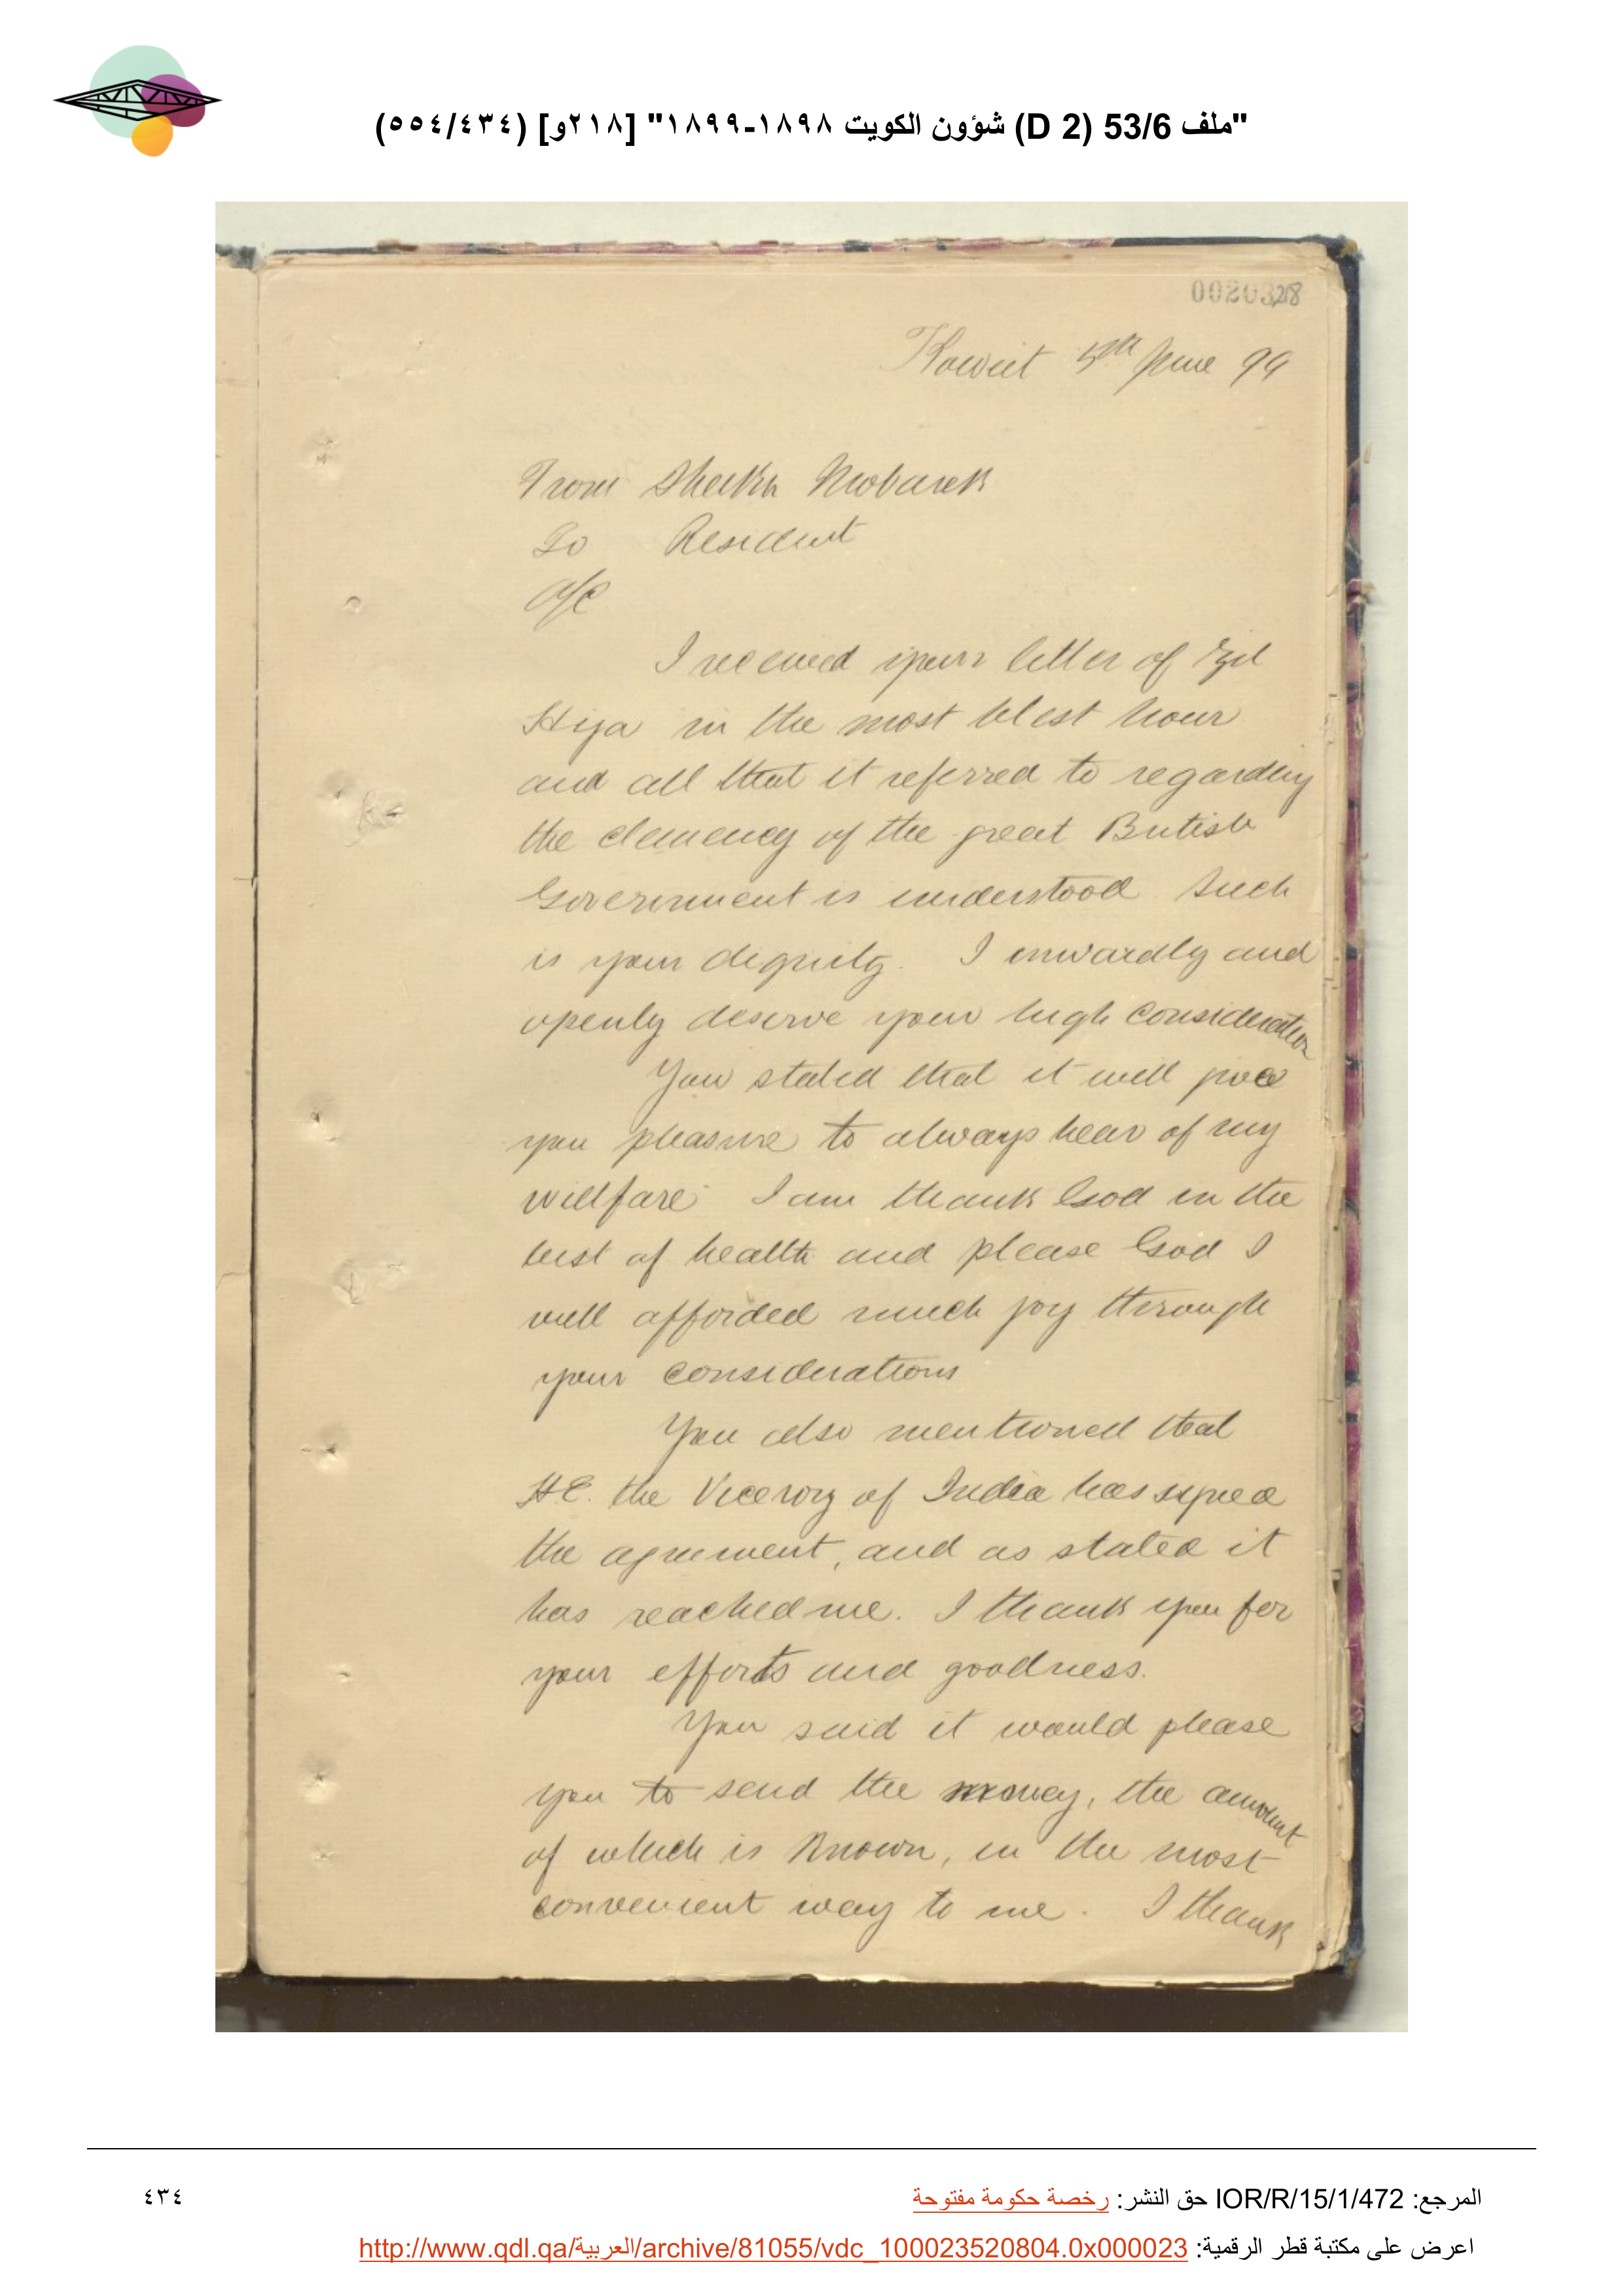 "ملف 53/6 (D 2) شؤون الكويت ١٨٩٨-١٨٩٩" [٢١٨و] (٥٥٤/٤٣٤)
00203 218
Koweit 5th June 99
From Sheikh Mobarek
To Resident
A/C
I received your letter of Zil
Hija in the most blest hour
and all that it referred to regarding
the clemency of the great British
Government is understood Such
is your dignity. I inwardly and
openly deserve your high consideration
You stated that it will give
you pleasure to always hear of my
willfare I am thank God in the
best of health and please God I
will afforded much joy through
your considerations
You also mentioned that
H.E. the Viceroy of India has signed
the agreement, and as stated it
has reached me. I thank you for
your efforts and goodness.
You said it would please
you to send the money, the amount
of which is known, in the most
convenient way to me. I thank
المرجع: IOR/R/15/1/472 حق النشر: رخصة حكومة مفتوحة
٤٣٤
اعرض على مكتبة قطر الرقمية: http://www.qdl.qa/العربية/archive/81055/vdc_100023520804.0x000023